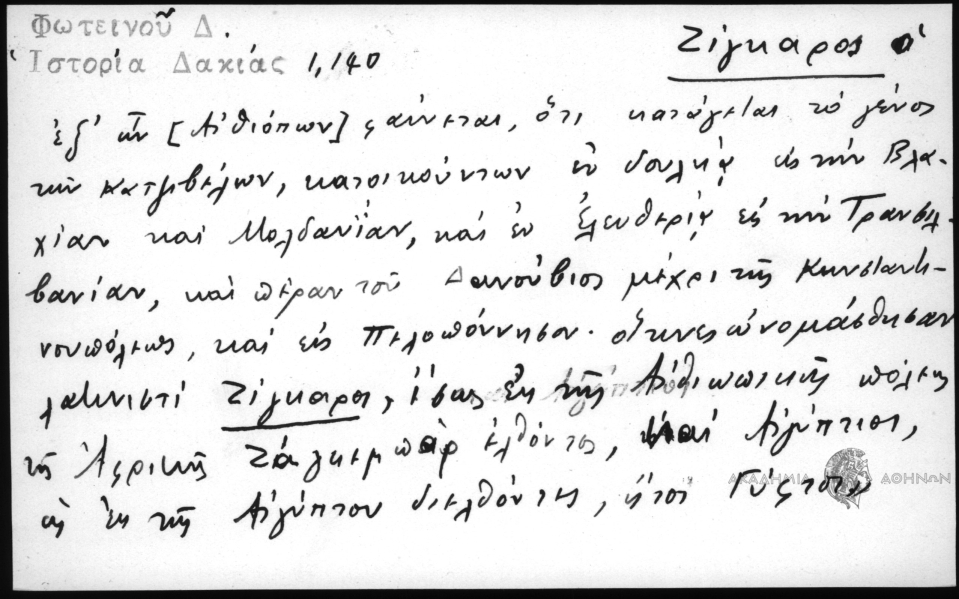 Φωτεινοῦ Δ.
Ἱστορία Δακίας 1,140
Ζίγκαρος ὁ
ἐξ' ὧν [Αἰθιόπων] φαίνεται, ὅτι κατάγεται τὸ γένος
τῶν κατζιβέλων, κατοικούντων ἐν δουλείᾳ εἰς τὴν Βλα-
χίαν καὶ Μολδαυΐαν, καὶ ἐν ἐλευθερίᾳ εἰς τὴν Τρανσιλ-
βανίαν, καὶ πέραν τοῦ Δανούβιος μέχρι τῆς Κωνσταντι-
νουπόλεως, καὶ εἰς Πελοπόννησον· οἵτινες ὠνομάσθησαν
λατινιστὶ Ζίγκαροι, ἐκ τῆς Αἰθιωπικῆς πόλεως
τῆς Ἀφρικῆς Ζάγκεμπαρ ἐλθόντες, καὶ Αἰγύπτιοι,
ὡς ἐκ τῆς Αἰγύπτου διελθόντες, ἤτοι Γύφτοι
ΑΚΑΔΗΜΙΑ ΑΘΗΝΩΝ